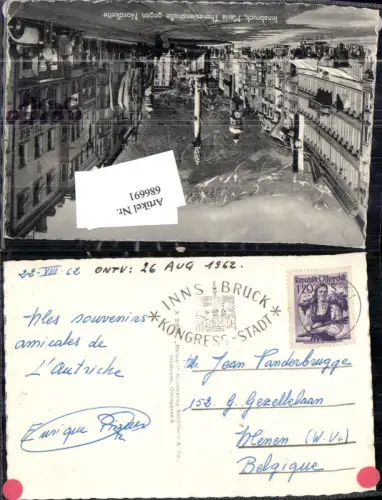 Innsbruck, Maria Theresienstraße gegen Nordkette
Artikel Nr.
686691
22-VIII-62 ONTV: 26 AUG 1962.
INNSBRUCK
KONGRESS-STADT
Republik Österreich
1.20
Mes souvenirs
amicales de
L'Autriche
Enrique
Mr. Jean Vanderbrugge
152. G. Gezellelaan
Menen (W.VL)
Belgique